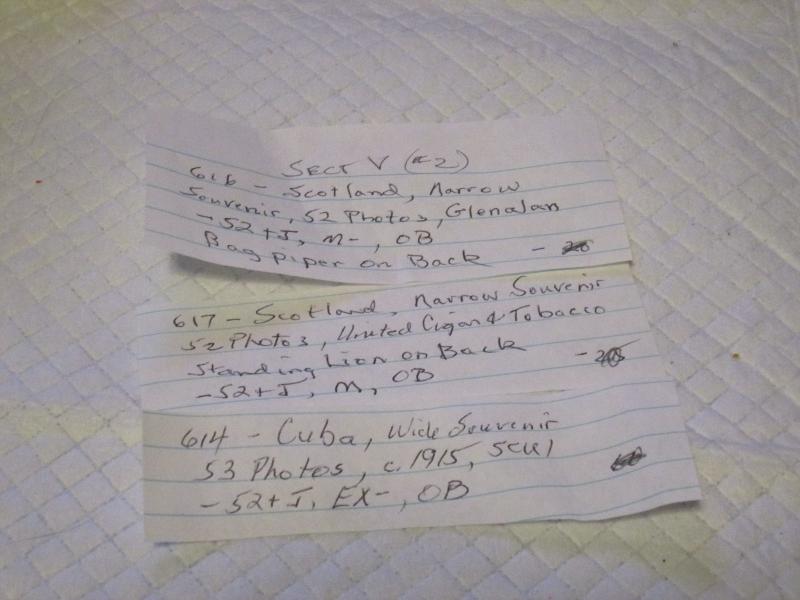 SECT V (#2)
616 - Scotland, Narrow
Souvenir, 52 Photos, Glenalan
- 52 + J, M-, OB
Bag piper on Back -
617 - Scotland, Narrow Souvenir
52 Photos, United Cigar & Tobacco
Standing Lion on Back -
- 52 + J, M, OB
614 - Cuba, Wide Souvenir
53 Photos, c. 1915, SCU1
- 52 + J, EX-, OB